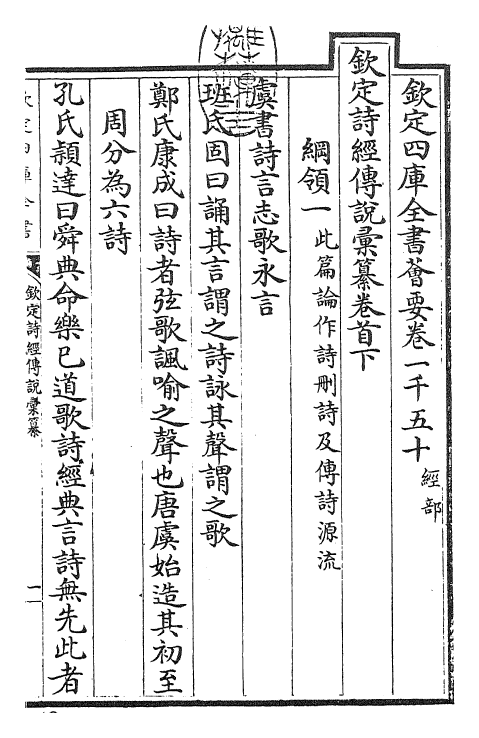 欽定四庫全書薈要卷一千五十 經部
欽定詩經傳說彙纂卷首下
綱領一 此篇論作詩刪詩及傳詩源流
虞書詩言志歌永言
班氏固曰誦其言謂之詩詠其聲謂之歌
鄭氏康成曰詩者弦歌諷喻之聲也唐虞始造其初至
周分為六詩
孔氏穎達曰舜典命樂已道歌詩經典言詩無先此者
欽定詩經傳說彙纂
一